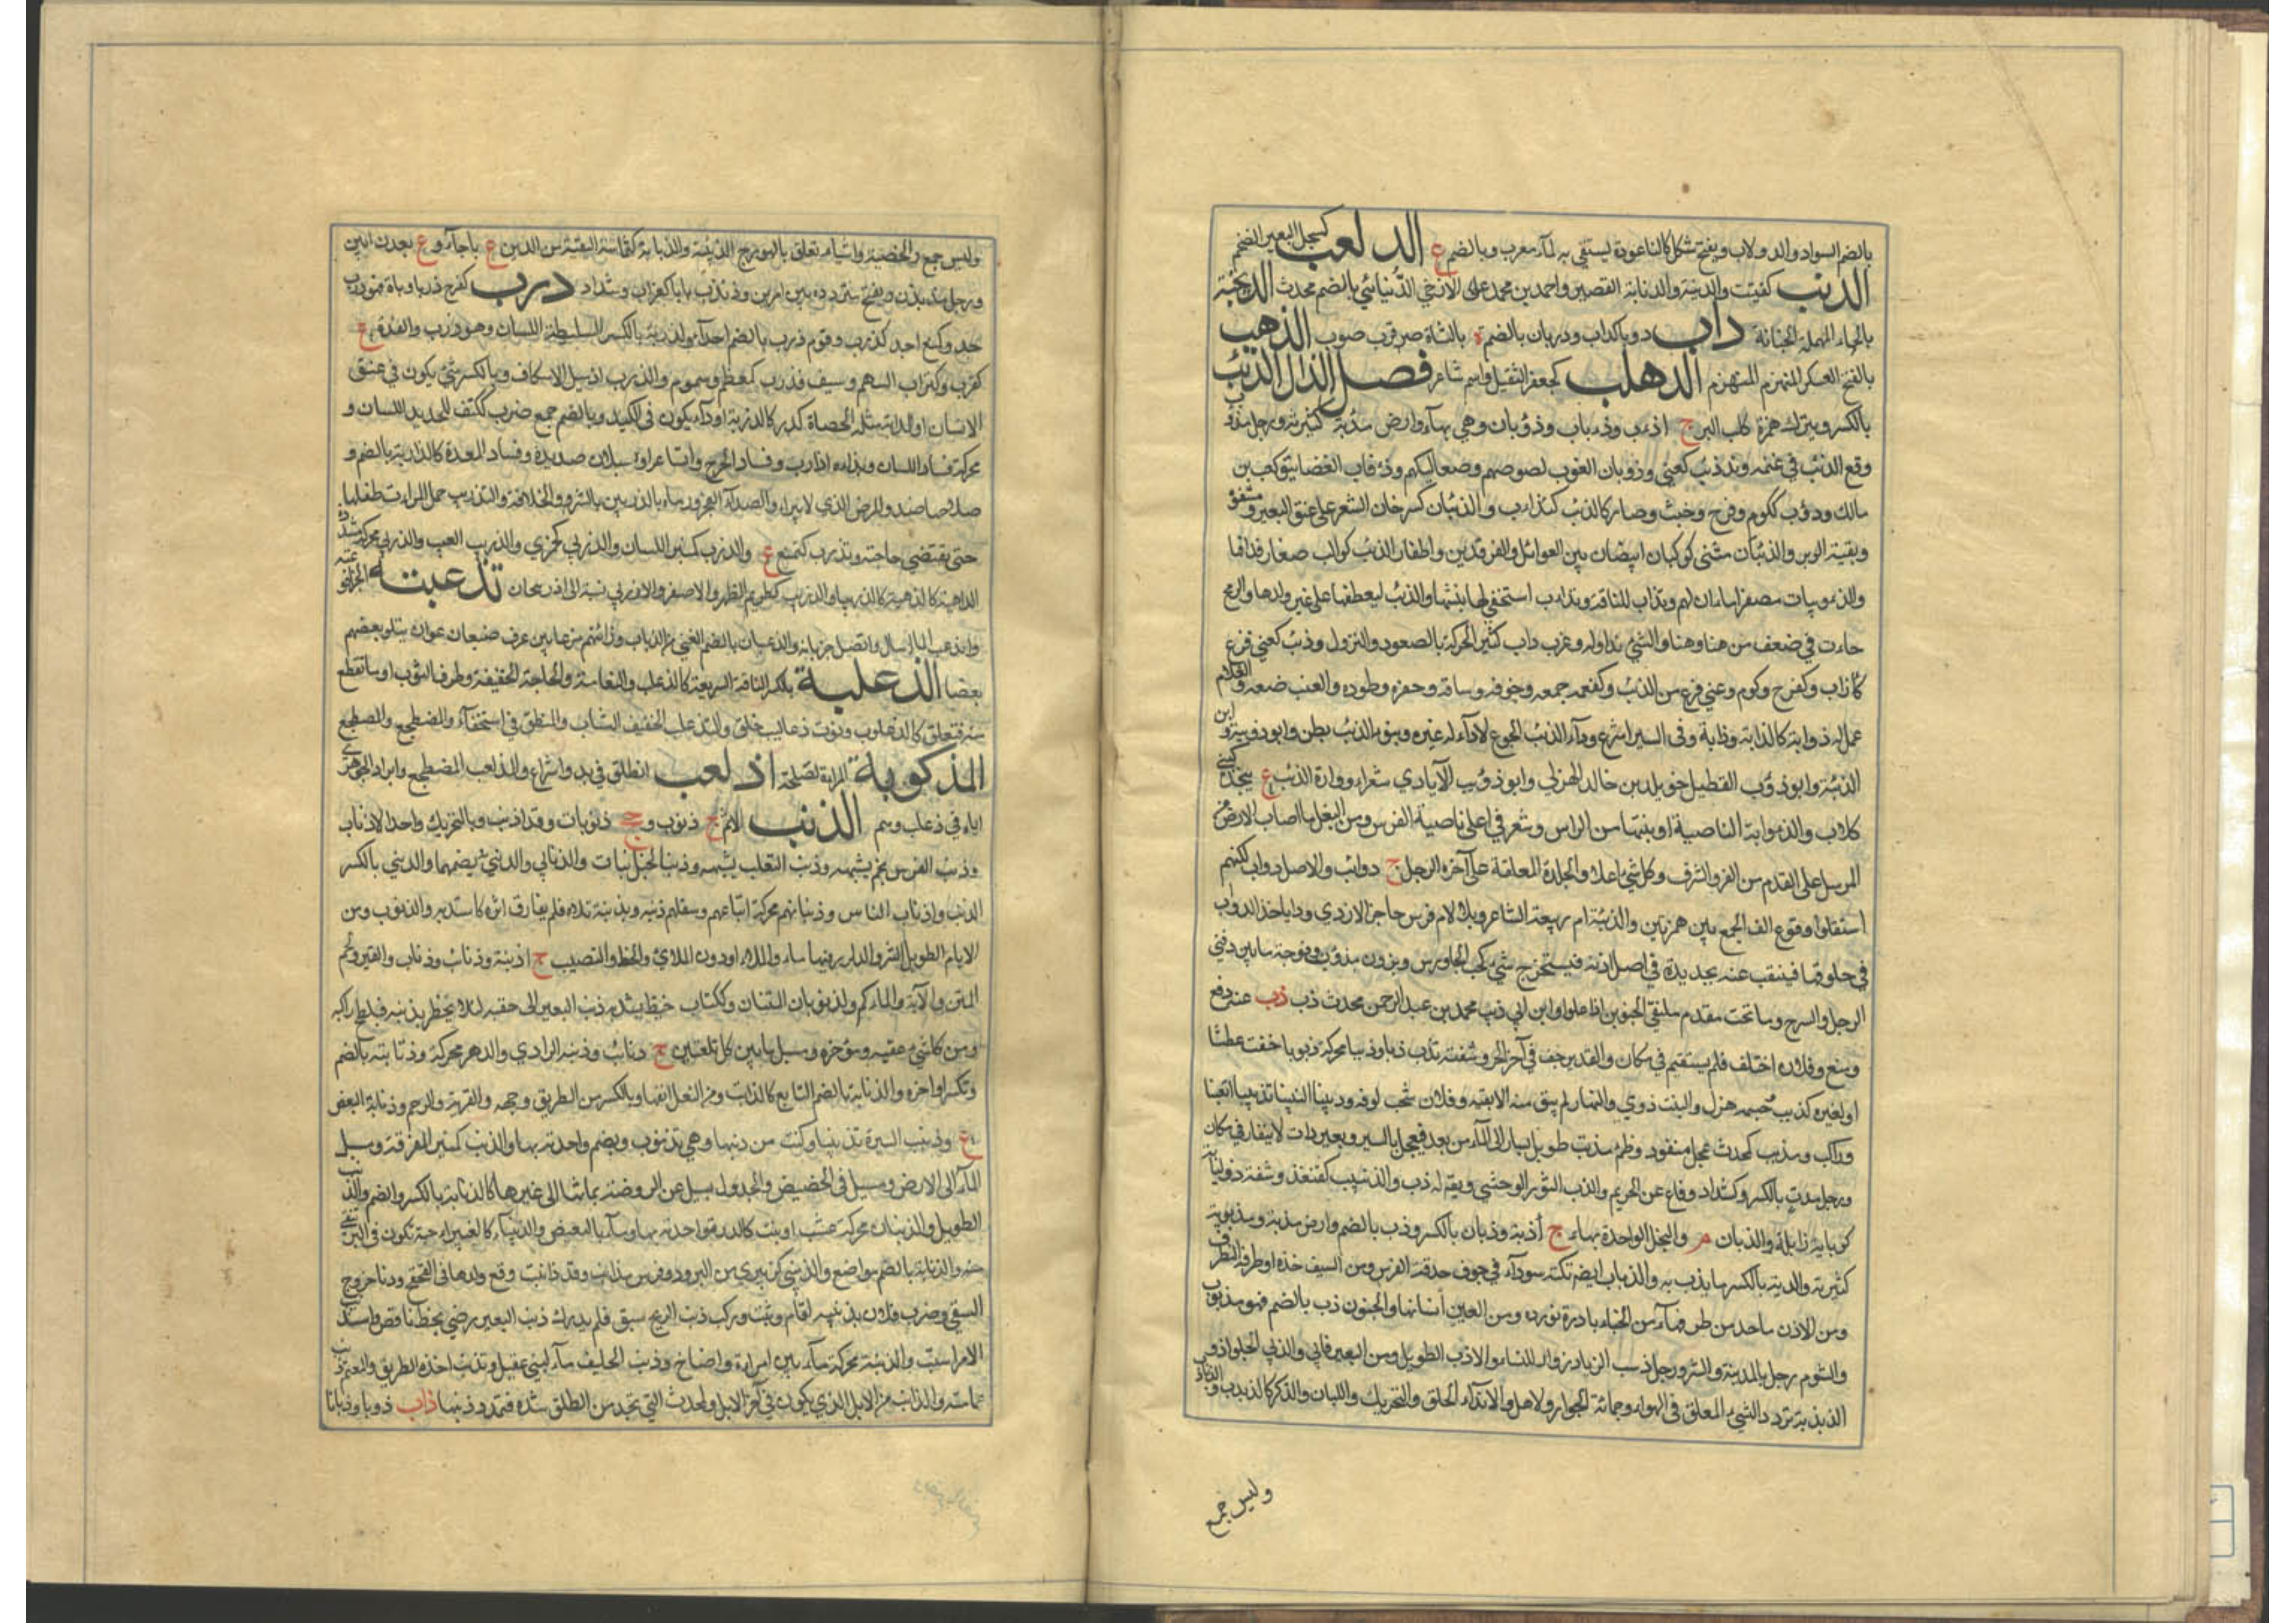 بالضم السواد والدولاب ويفتح شكل كالناعورة يستقى به الماء معرب وبالضم ع الدلعب كسجل البعير الضخم
الدنب كقنب والدنبة والدنابة القصير واحمد بن محمد على الدنبائي بالضم محدث الدحنبة
بالحاء المهملة الخنابة داب دوبا كداب ودربان بالضم ة بالشاة قرب صوب الذهب
بالفتح العسكر المنهزم الدهلب كجعفر الثقيل واسم شاعر فصل الذال الذئب
بالكسر ويترك همزه كلب البر ج اذؤب وذئاب وذؤبان وهي بهاء وارض مذبة كثيرته ورجل مذؤب
وقع الذئب في غنمه وقد ذئب كعني وذؤبان العرب لصوصهم وصعاليكهم وذئاب الغضا بنو كعب بن
مالك وذؤب ككرم وفرح وخبث وصار كالذئب كتذاب والذئبان كسرحان الشعر على عنق البعير ومشفره
وبقية الوبر والذئبان مثنى كوكبان ابيضان بين العوائذ والفرقدين واظفار الذئب كواكب صغار قدامها
والذؤيبات مصغرا ماءان لهم وتذاب للناقة وتذاءب استخفى لها متشبها بالذئب ليعطفها على غير ولدها والريح
جاءت في ضعف من هنا وهنا والشيء تداوله وغرب ذاب كثير الحركة بالصعود والنزول وذئب كعني فزع
كاذاب وكفرح وكرم وعني فزع من الذئب وكمنعه جمعه وخوفه وساقه وحقره وطرده والقتب صنعه والغلام
عمل له ذوابة كاذابه وذابه وفي السير اسرع وداء الذئب الجوع لا داء له غيره وبنو الذئب بطن وابو ذؤيبة وابن
الذئبة وابو ذؤيب القطيل خويلد بن خالد الهذلي وابو ذؤيب الايادي شعراء ودارة الذئب ع بنجد لبني
كلاب والذوابة الناصية او منبتها من الراس وشعر في اعلى ناصية الفرس ومن النعل ما اصاب الارض من
المرسل على القدم من العز والشرف وكل شيء اعلاه والجلدة المعلقة على آخرة الرحل ج ذوائب والاصل ذوائب لكنهم
استثقلوا وقوع الف الجمع بين همزتين والذئبة ام ربيعة الشاعر وبلا لام فرس حاجز الازدي وداء ياخذ الدواب
في حلوقها فينقب عنه بحديدة في اصل اذنه فيستخرج شيء كحب الجاورس وبرذون مذؤوب وفرجة ما بين دفتي
الرحل والسرج وما تحت مقدم ملتقى الحنوين وابن ابي ذئب محمد بن عبد الرحمن محدث ذب ذب عنه دفع
ومنع وفلان اختلف فلم يستقم في مكان والغدير جف في آخر الحر وشفته تذب ذبا وذببا محركة وذبوبا جفت عطشا
او لغيره كذبب وجسمه هزل والنبت ذوى والنهار لم يبق منه الا بقية وفلان شحب لونه وذببنا ليلتنا تذبيبا اتعبنا
وراكب مذبب كمحدث عجل منفرد وظمء مذبب طويل يسار الى الماء من بعد فيعجل بالسير وبعير ذاب لا يتقار في مكان
ورجل مذب بالكسر وكشداد دفاع عن الحريم والذب الثور الوحشي ويقال له ذب والذنبب كقنفذ وشفة ذبابة
كريانة ذابلة والذبان م والنحل الواحدة بهاء ج أذبة وذبان بالكسر وذب بالضم وارض مذبة ومذبوبة
كثيرته والمذبة بالكسر ما يذب به والذباب ايضا نكتة سوداء في جوف حدقة الفرس ومن السيف حده او طرفه المتطرف
ومن الاذن ما حد من طرفها ومن الحناء بادرة نوره ومن العين انسانها والجنون ذب بالضم فهو مذبوب
والشوم ورجل بالمدينة والشر ورجل ذب الزياد زوار للنساء والاذب الطويل ومن البعير نابه والذبي الجلواذ و
الذبذبة تردد الشيء المعلق في الهواء وحماية الجوار والاهل والايذاء الخلق والتحريك واللسان والذكر كالذبذب والذباذب
وليس جمع
وليس جمع والخصية واشياء تعلق بالهودج الذبذبة والذبابة كثمامة البقية من الدين ع باجاء و ع بعدن ابين
ورجل مذبذب ويفتح متردد بين امرين وذبذب باب كغراب وشداد ذرب كفرح ذربا وذرابة فهو ذرب
حد وكمنع احد كذرب وقوم ذرب بالضم احداء والذربة بالكسر السليطة اللسان وهو ذرب والغدة ج
كقرب وكتراب السم وسيف مذرب كمعظم مسموم والذرب ازميل الاسكاف وبالكسر شيء يكون في عنق
الانسان او الدابة مثل الحصاة كالذربة او داء يكون في الكبد وبالضم جمع ذرب ككتف للحديد اللسان و
محركة فساد اللسان وبذاءه ج اذراب وفساد الجرح واتساعه او سيلان صديده وفساد المعدة كالذرابة بالضم و
صلاحها ضد والمرض الذي لا يبرا والصدا والفجر ورماه بالذربين بالشر والخلاف والتذريب حمل المراة طفلها
حتى يقضي حاجته وتذرب كتمنع ع والذرب كسكر اللسان والذربى كجمزى والذرب العيب والذربي محركة مشددة
الداهية كالذربية والذريب كطريم الظهر والاصفر والاذربي نسبة الى اذربيجان تذعبته الجن افزعته
وانذعب الماء سال واتصل جريانه والذعبان بالضم الفتي من الذباب وراتهم مذعابين عرف ضبعان عوان يتلو بعضهم
بعضا الذعلبة بالكسر الناقة السريعة كالذعلب والنعامة والحاجة الخفيفة وطرف الثوب او ما تقطع
منه فتعلق كالذعلوب وثوب ذعاليب خلق والتذعلب الخفيف الشاب والمنطلق في استخفاء والمضطجع والمصطجع
المذكوبة المراة الصالحة اذلعب انطلق في جد واسراع والذلعب المضطجع وايراد الجوهري
اياه في ذعلب وهم الذنب الاثم ج ذنوب و جج ذنوبات وقد اذنب وبالتحريك واحد الاذناب
وذنب الفرس نجم يشبهه وذنب الثعلب يشبهه وذنب الخيل نبات والذنابى والذنبى بضمهما والذنبى بالكسر
الذنب واذناب الناس وذنباتهم محركة اتباعهم وسفلتهم وذنبه يذنبه تلاه فلم يفارق اثره كاستذنبه والذنوب ومن
الايام الطويل الشر والدلو فيها ماء والملاى او دون الملاى والحظ والنصيب ج اذنبة وذنائب وذناب والقبر ولحم
المتن والالية والماكم والذنوبان المتنان وككتاب خيط يشد به ذنب البعير الى حقبه لئلا يخطر بذنبه فيلطخ راكبه
ومن كل شيء عقبه ومؤخره ومسيل ما بين كل تلعتين ج ذنائب وذنبة الوادي والدهر محركة وذنابته بالضم
وتكسر اواخره والذنابة بالضم التابع كالذانب ومن النعل انفها وبالكسر من الطريق وجهه والقرابة والرحم وذنابة العيص
ع وذنبت البسرة تذنيبا وكتت من ذنبها وهي تذنوب ويضم واحدته بهاء والمذنب كمنبر المغرفة ومسيل
الماء الى الارض ومسيل في الحضيض والجدول يسيل عن الروضة بمائها الى غيرها كالذنابة بالكسر والضم والذنب
الطويل والذنبان محركة عشب او نبت كالذرة واحدته بهاء وماء بالعيص والذنيباء كالغبيراء حبة تكون في البر تنقى
منه والذنابة بالضم موضع والذنيبي كزبيري من البرود وفرس مذانب وقد ذانبت وقع ولدها في القحقح ودنا خروج
السقي وضرب فلان بذنبه اقام وثبت وركب ذنب الريح سبق فلم يدرك وذنب البعير رضي بحظ ناقص واستذنب
الامر استتب والذنبة محركة ماء بين امرة واضاخ وذنب الحليف ماء لبني عقيل وتذنب اخذ الطريق والمعتم ذنب
عمامته والمذانب من الابل الذي يكون في آخر الابل ومحدث التي تجد من الطلق شدة فتمدد ذنبها ذاب ذوبا وذوبانا